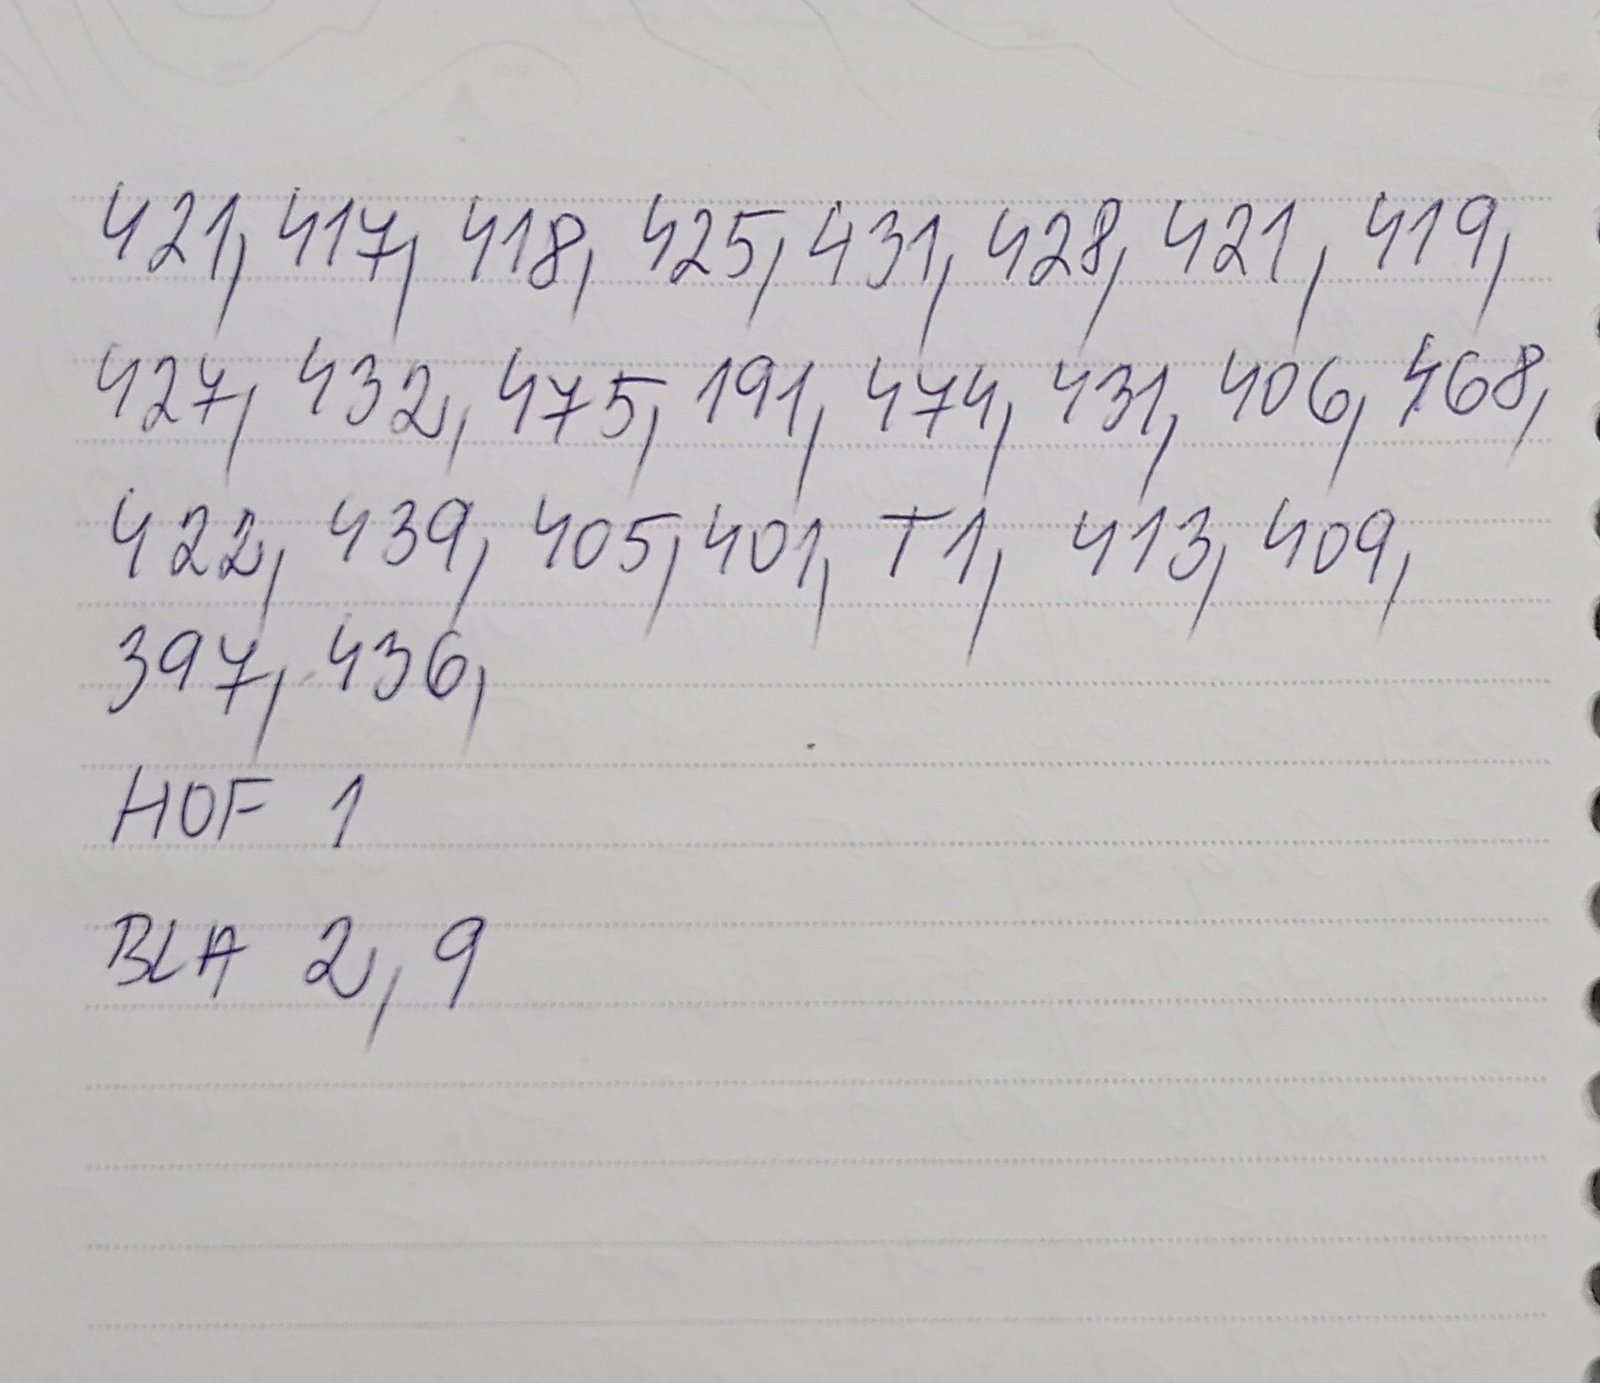 421, 417, 418, 425, 431, 428, 421, 419,
427, 432, 475, 191, 474, 431, 406, 468,
422, 439, 405, 401, T1, 413, 409,
397, 436,
HOF 1
BLA 2, 9